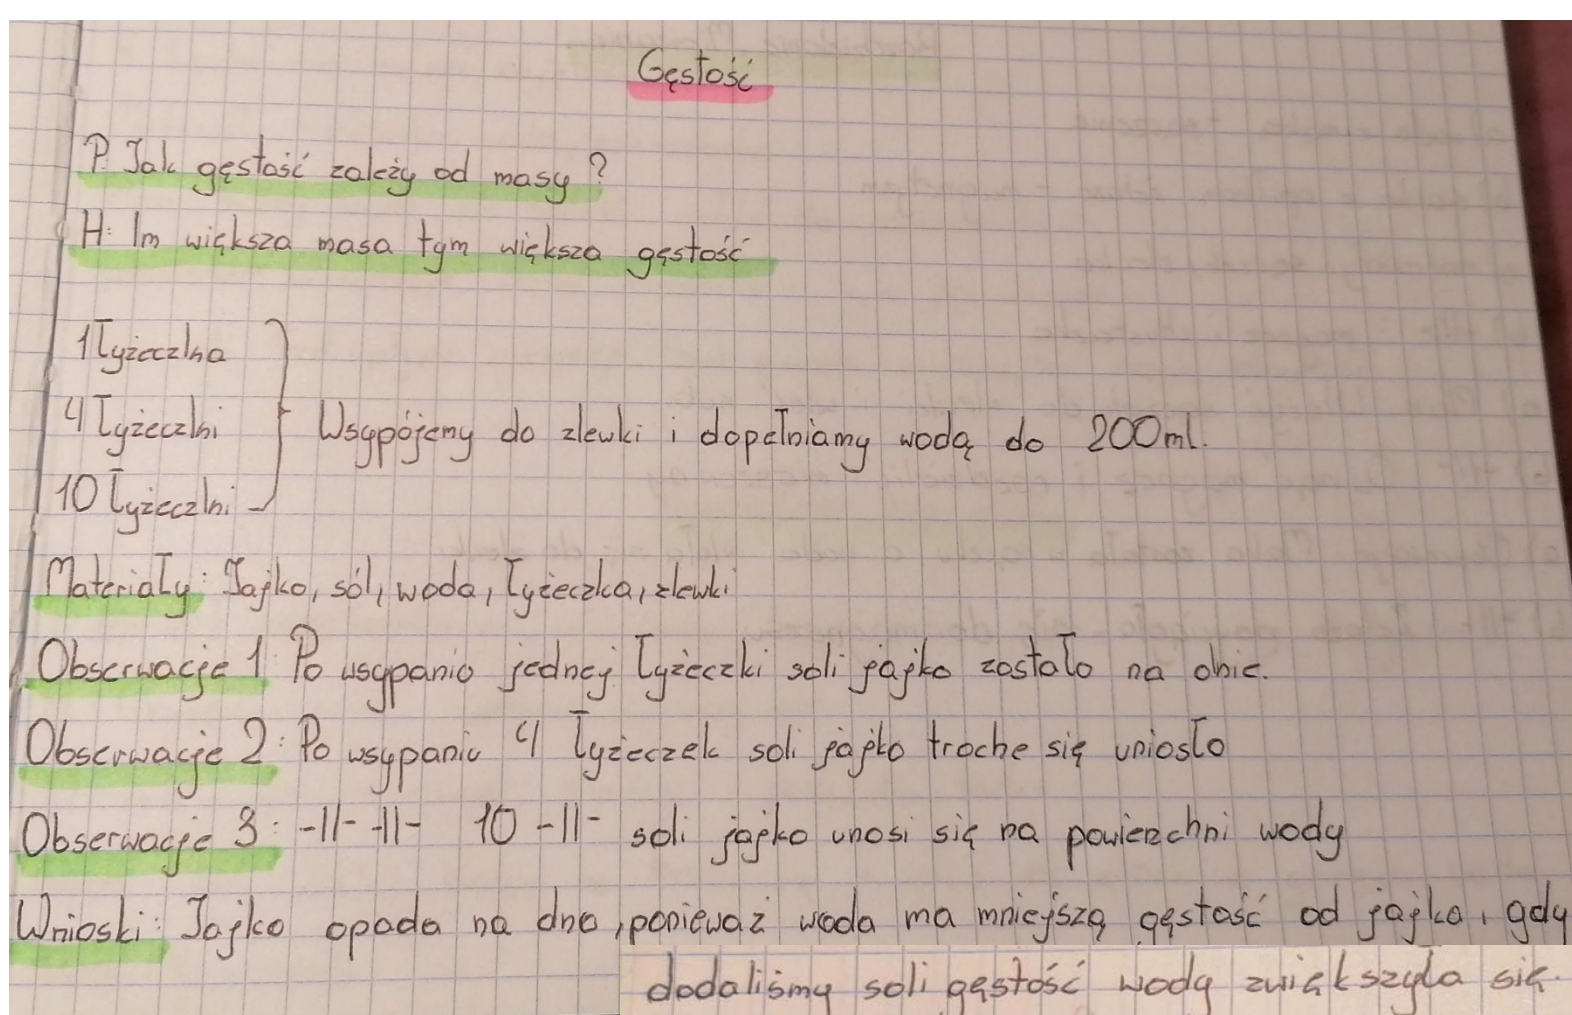 Gęstość
P. Jak gęstość zależy od masy?
H: Im większa masa tym większa gęstość
1 łyżeczka
4 łyżeczki
10 łyżeczki
Wsypójemy do zlewki i dopełniamy wodą do 200ml.
Materiały: Jajko, sól, woda, łyżeczka, zlewki
Obserwacje 1: Po wsypaniu jednej łyżeczki soli jajko zostało na dnie.
Obserwacje 2: Po wsypaniu 4 łyżeczek soli jajko troche się uniosło
Obserwacje 3: -||- -||- 10 -||- soli jajko unosi się na powierzchni wody
Wnioski: Jajko opada na dno, ponieważ woda ma mniejszą gęstość od jajka, gdy
dodaliśmy soli gęstość wody zwiększyła się.